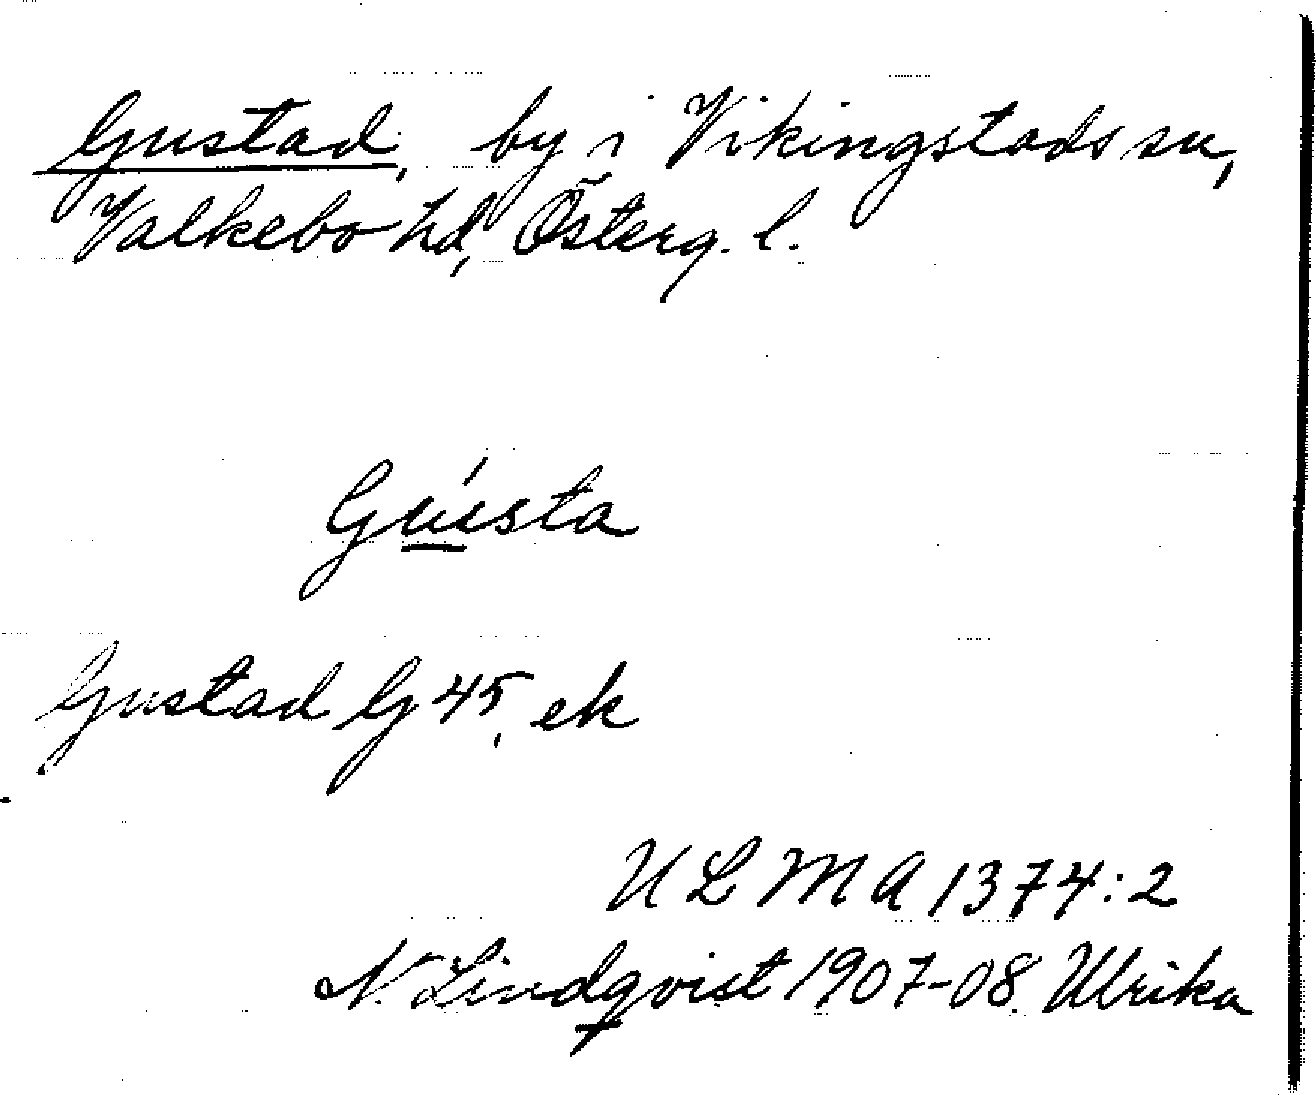 Gustad, by i Vikingstads sn,
Valkebo hd, Österg. l.
Gústa
Gustad G 45, ek
ULMA 1374:2
N. Lindqvist 1907-08. Ulrika